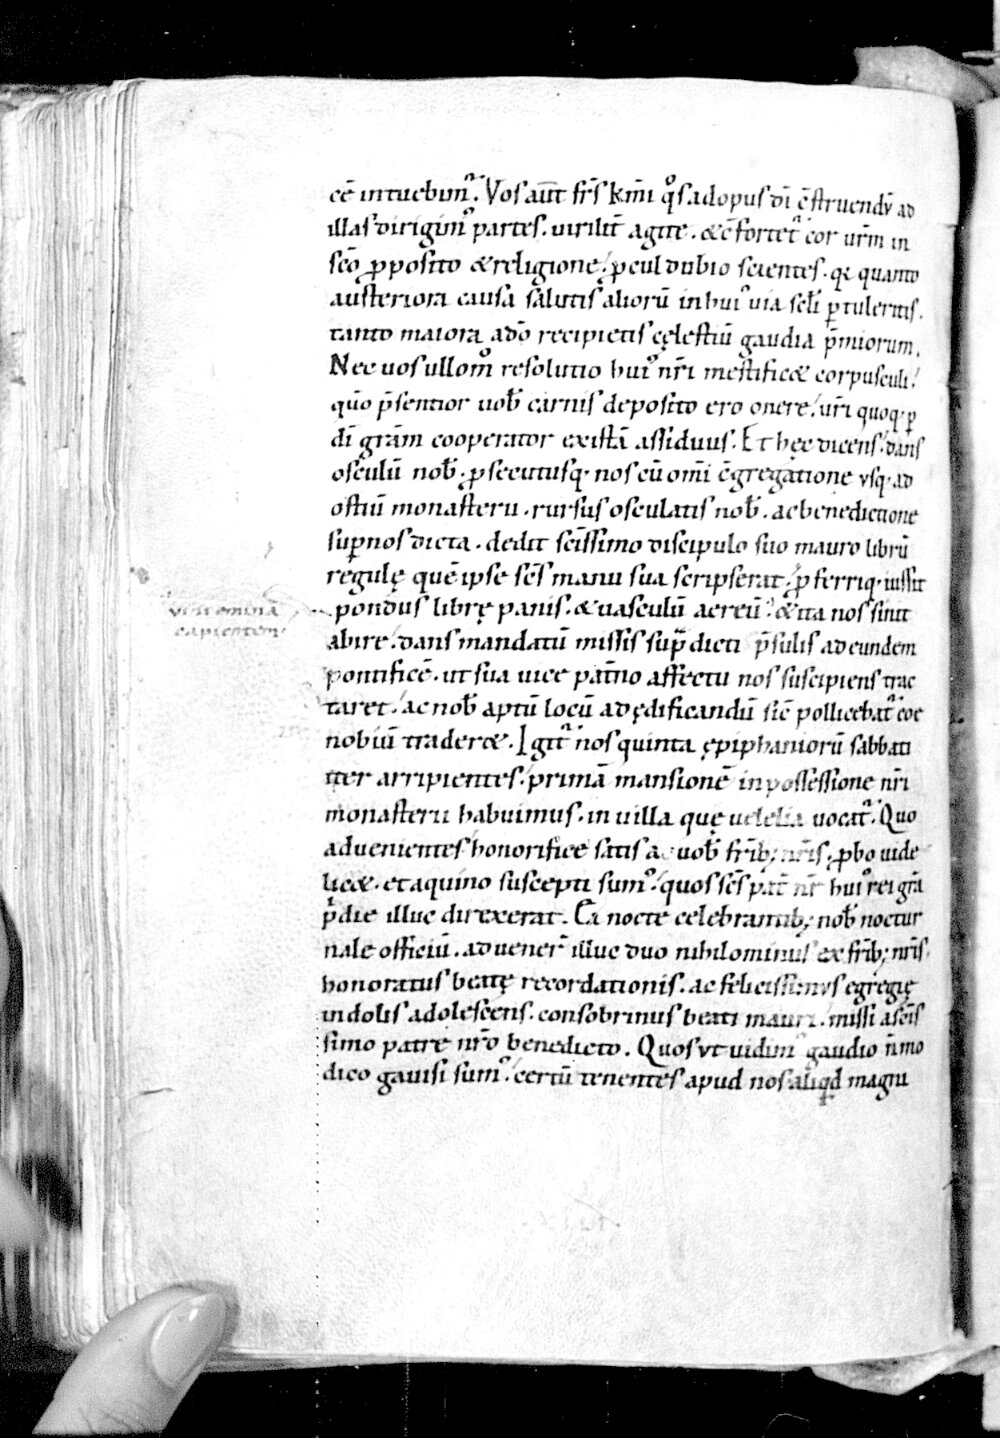 cē intuebimꝰ. Vos aūt fr̄s km̄i qͦs ad opus dī cōstruendū ad
illas dirigimꝰ partes. virilit̄ agite. & cōfortet᷑ cor ur̄m in
scō ꝓposito & religione. ꝓcul dubio scientes. qꝛ quanto
austeriora causa salutis aliorū in huiꝰ uia scł̄i ꝑtuleritis.
tanto maiora a dō recipietis cęlestiū gaudia p̄miorum.
Nec uos ullomͦ resolutio huiꝰ nr̄i mestific& corpusculi.
qm̄o p̄sentior uob̄ carnis deposito ero onere. ur̄i quoq. ꝑ
dī grām cooperator existā assiduus. Et hęc dicens. dans
osculū nob̄. ꝓsecutusq. nos cū omī cōgregatione usq. ad
ostiū monasterii. rursus osculatis nob̄. ac benedictione
sup nos dicta. dedit scīssimo discipulo suo mauro librū
regulę quē ipse sc̄s manu sua scripserat. ꝓferriq. iussit
uti femina
sapientem
pondus librę panis. & uasculū aereū. & ita nos siuit
abire. dans mandatū missis sup̄dicti p̄sulis ad eundem
pontificē. ut sua uice pat̄no affectu nos suscipiens trac
taret. ac nob̄ aptū locū ad ędificandū sic̄ pollicebat᷑ coe
nobiū trader&. Igit᷑ nos quinta ępiphaniorū sabbati
iter arripientes. primā mansionē in possessione nr̄i
monasterii habuimus. in uilla quę uetelia uocat᷑. Quo
aduenientes honorifice satis a uob̄ frīb; nr̄is. ꝓbo uide
lic&. et aquino suscepti sumꝰ. quos sc̄s pat̄ nr̄ huiꝰ rei grā
p̄die illuc direxerat. Ea nocte celebrantib; nob̄ noctur
nale officiū. aduener̄ illuc duo nihilominus ex frīb; nr̄is.
honoratus beatę recordationis. ac felicissimus egregię
indolis adolescens. consobrinus beati mauri. missi a scīs
simo patre nr̄o benedicto. Quos ut uidimꝰ gaudio n̄ mo
dico gauisi sumꝰ. certū tenentes apud nos aliqd magni